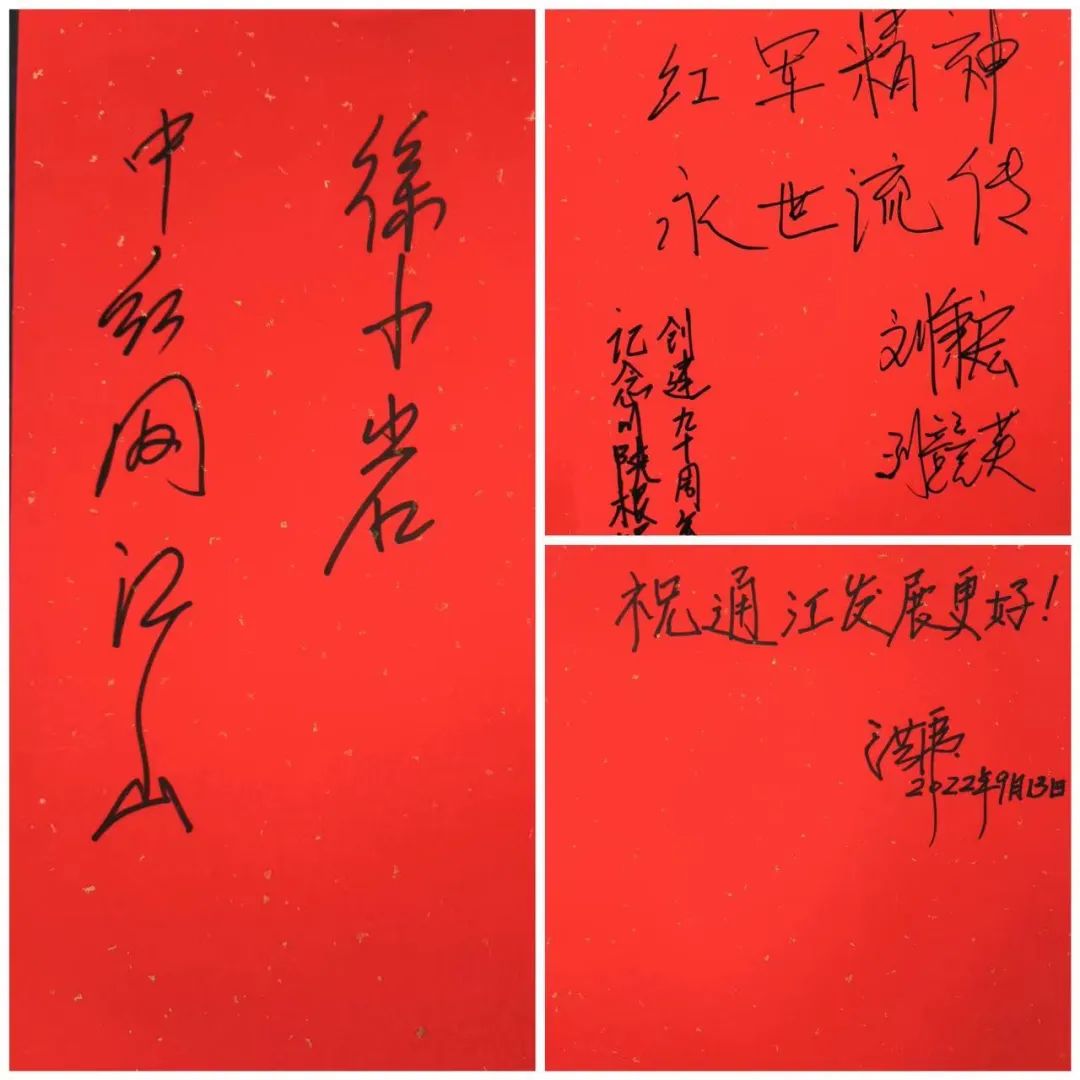 徐小岩
中红网江山
红军精神
永世流传
记念川陕根
创建九十周年
祝通江发展更好！
洪虎
2022年9月13日